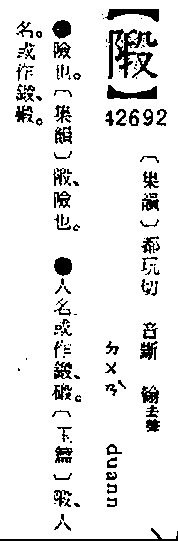 【⿰阝段】
42692
〔集韻〕都玩切 音斷 翰去聲
ㄉㄨㄢˋ duann
●險也。〔集韻〕⿰阝段、險也。 ●人名或作鍛、碫。〔玉篇〕⿰阝段、人
名。或作鍛、